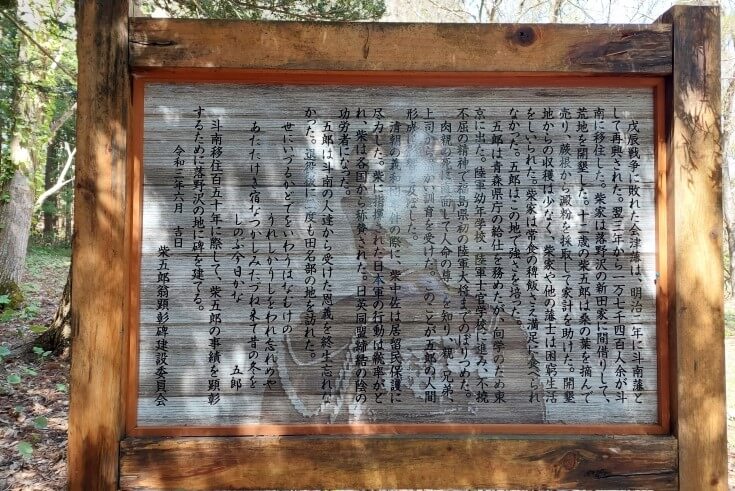 戊辰戦争に敗れた会津藩は、明治二年に斗南藩と
して再興された。翌三年から一万七千四百人余が斗
南に移住した。柴家は落野沢の新田家に間借りして、
荒地を開墾した。十二歳の柴五郎は桑の葉を摘んで
売り、蕨根から澱粉を採取して家計を助けた。開墾
地からの収穫は少なく、柴家や他の藩士は困窮生活
をしいられた。柴家は常食の稗飯さえ満足に食べられ
なかった。五郎はこの地で強さを培った。
五郎は青森県庁の給仕を務めたが、向学のため東
京に出た。陸軍幼年学校、陸軍士官学校に進み、不撓
不屈の精神で福島県初の陸軍大将までのぼりつめた。
肉親の死に直面して人命の尊さを知り、親、兄弟、
上司から 訓育を受けた。このことが五郎の人間
形成に した。
清朝の 事件の際に、柴中佐は居留民保護に
尽力した。柴に指揮された日本軍の行動は義率がと
れ、柴は各国から称賛された。日英同盟締結の陰の
功労者になった。
五郎は斗南の人達から受けた恩義を終生忘れな
かった。退役後に二度も田名部の地を訪れた。
世にいづるかどでをいわうはなむけの
うれしかりしをわれ忘れめや
あたたけき宿なつかしみたづね来て昔の冬を
しのぶ今日かな
五郎
斗南移住百五十年に際して、柴五郎の事績を顕彰
するために落野沢の地に碑を建てる。
令和三年六月 吉日
柴五郎翁顕彰碑建設委員会